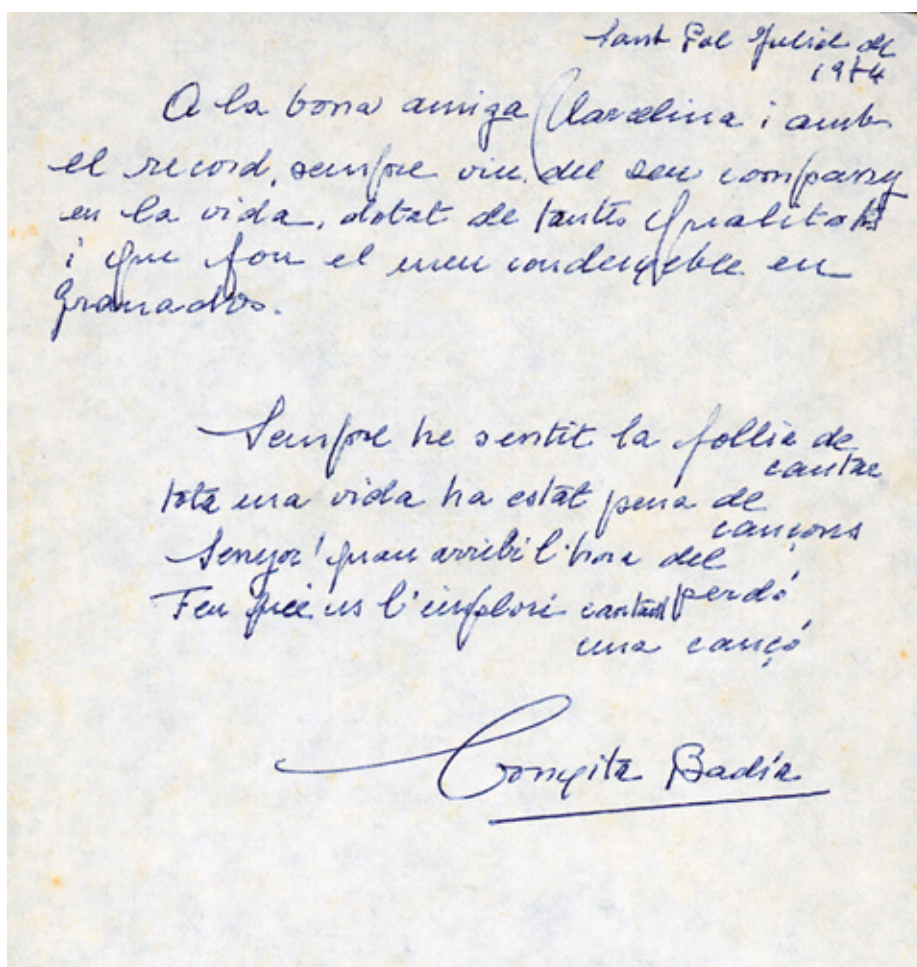 Sant Pol Juliol de
1974
A la bona amiga Marcelina i amb
el record, sempre viu, del seu company
en la vida, dotat de tantes qualitats
i que fou el meu condeixeble en
Granados.
Sempre he sentit la follia de
cantar
tota una vida ha estat plena de
cançons
Senyor! quan arribi l'hora del
perdó
Feu que us l'implori cantant
una cançó
Conxita Badía